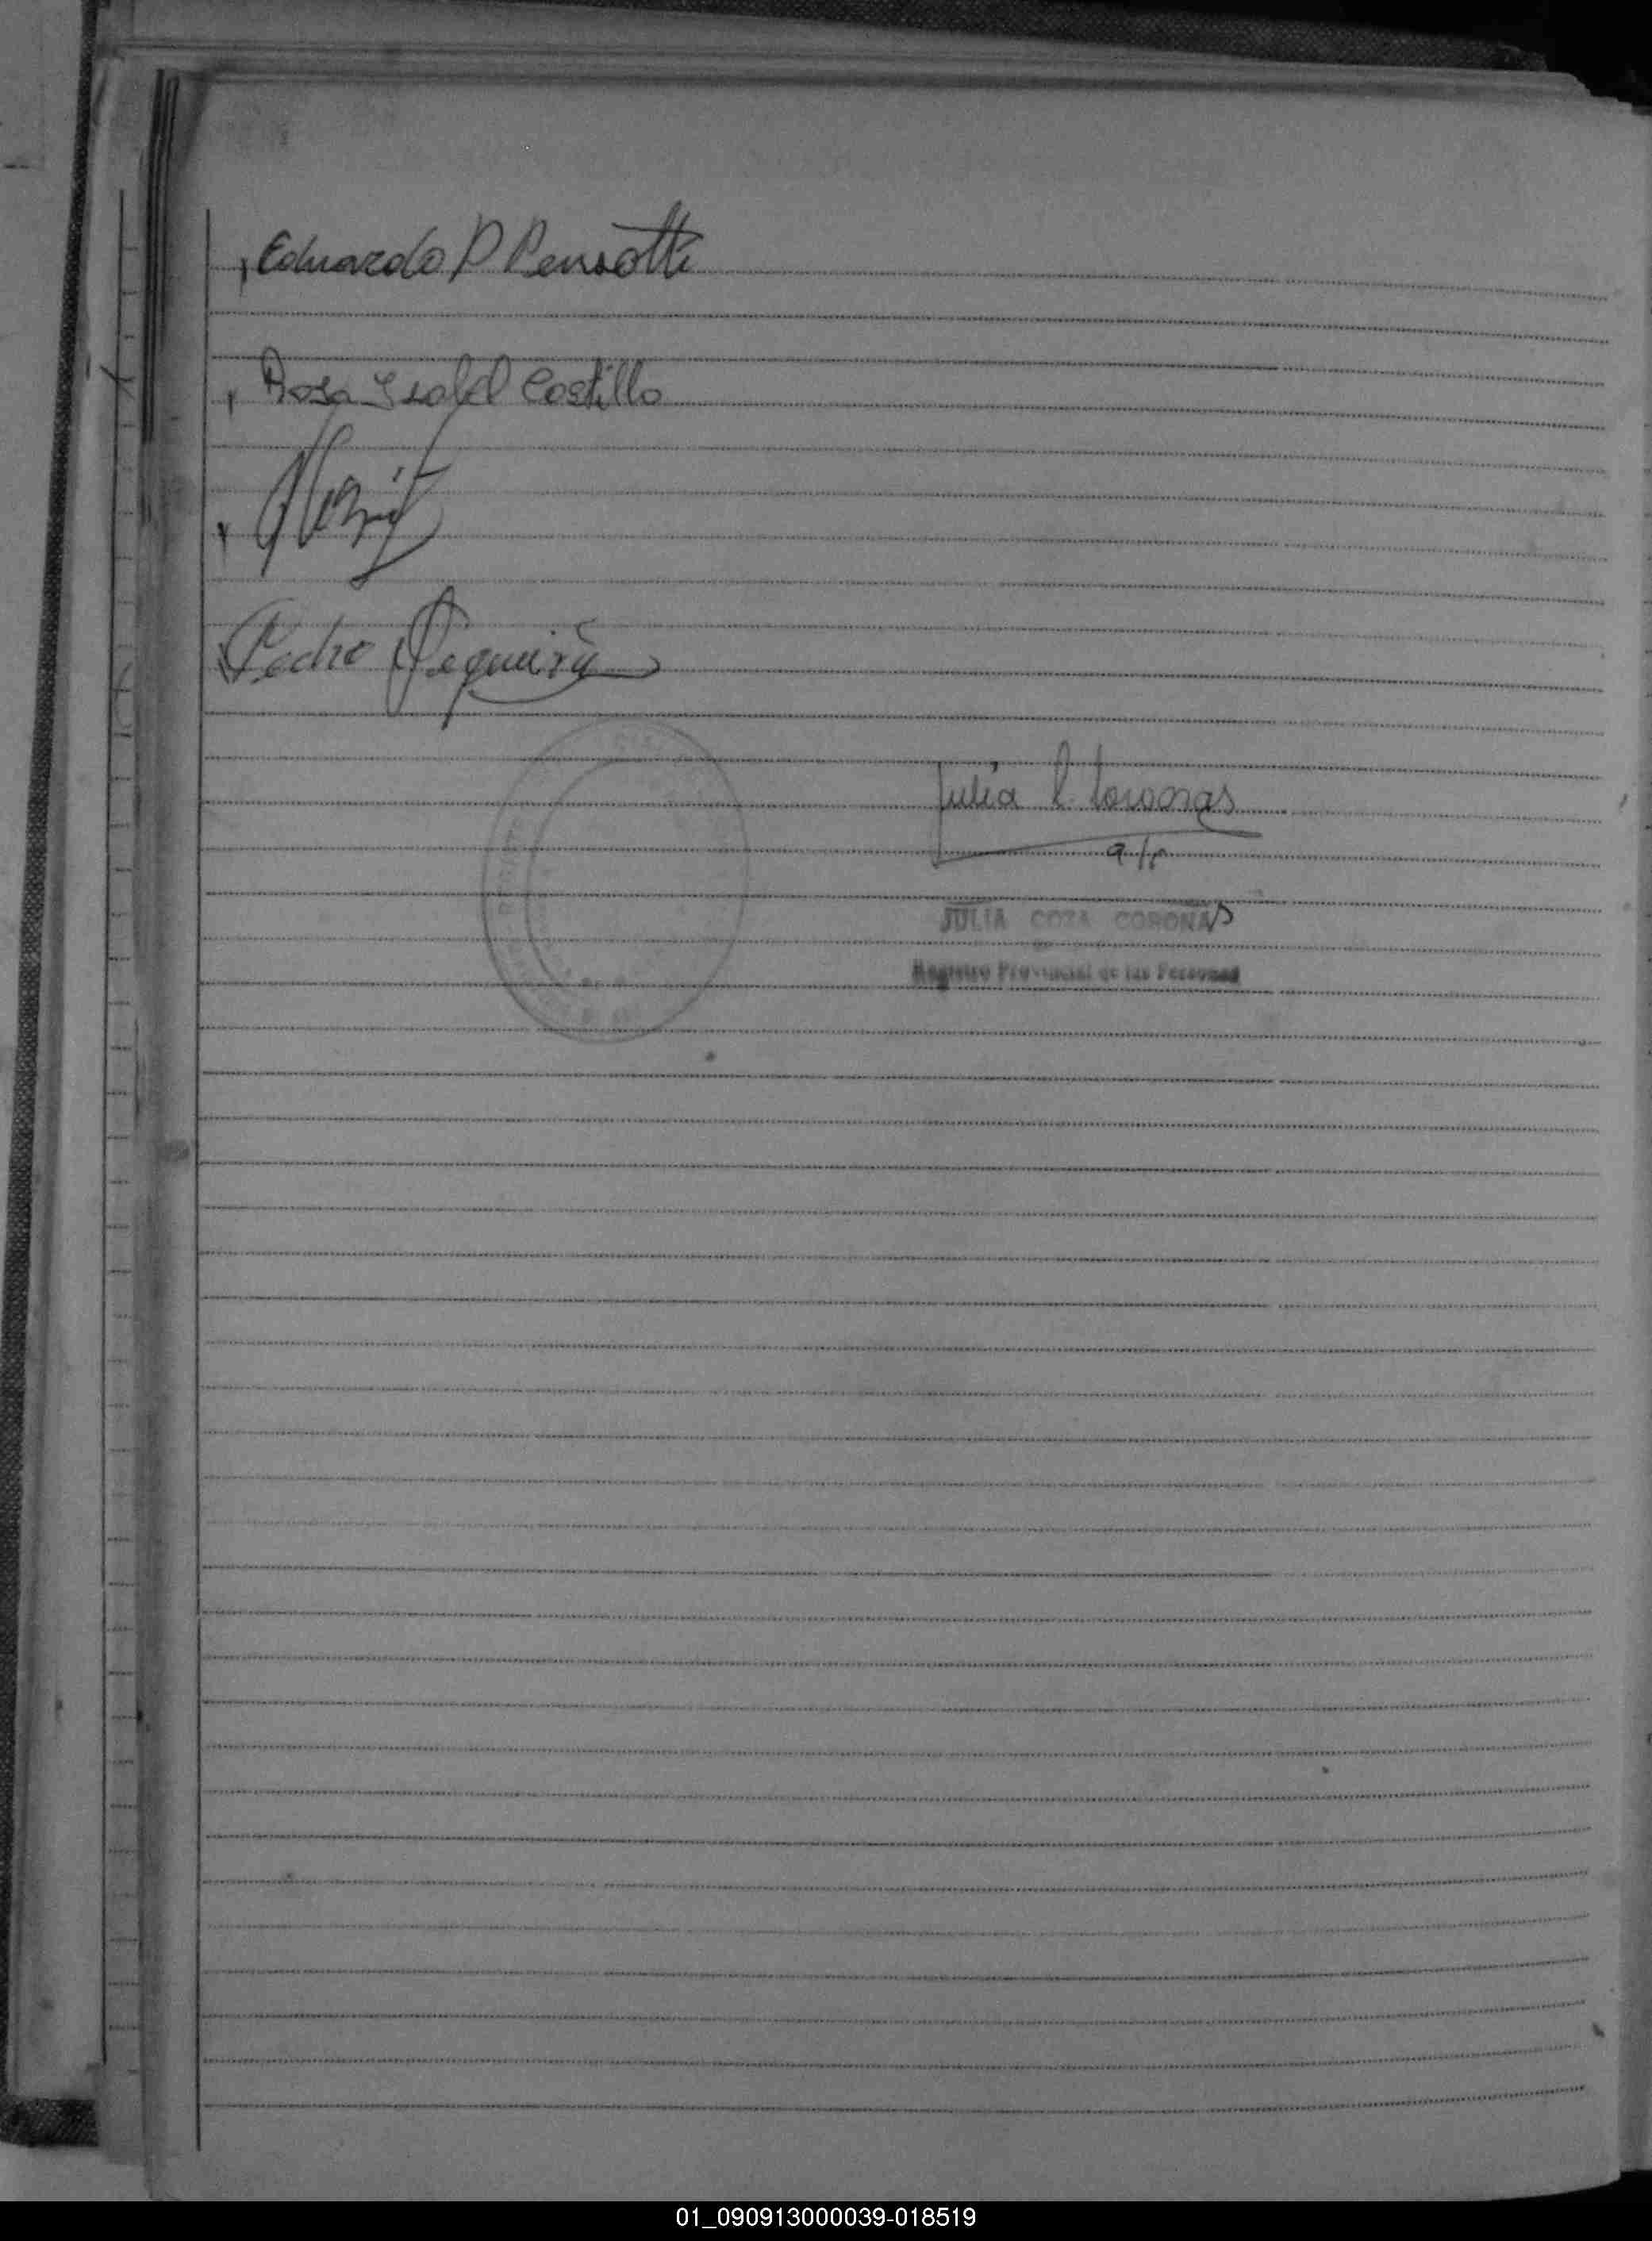 Eduardo P Pensotti
Rosa Isabel Castillo
Pedro Pequeira
Julia C. Coronas
a/p
JULIA COZA CORONAS
Registro Provincial de las Personas
01_090913000039-018519